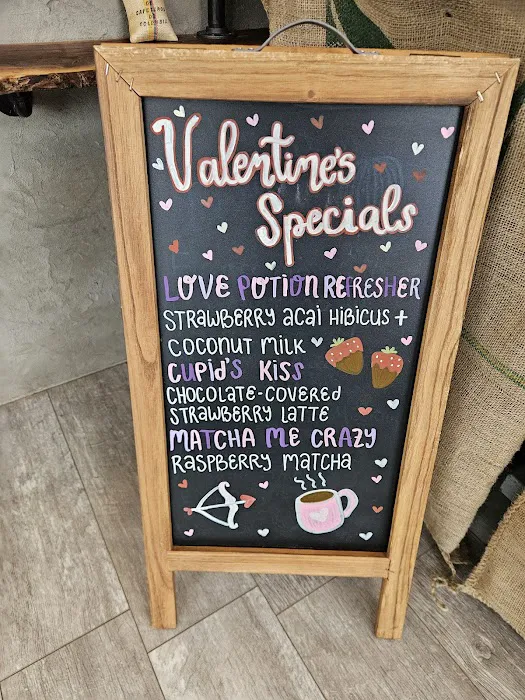 DE
CAFETEROS
DE COLOMBIA
Valentine's
Specials
LOVE POTION REFRESHER
STRAWBERRY ACAI HIBICUS +
COCONUT MILK
CUPID'S KISS
CHOCOLATE-COVERED
STRAWBERRY LATTE
MATCHA ME CRAZY
RASPBERRY MATCHA